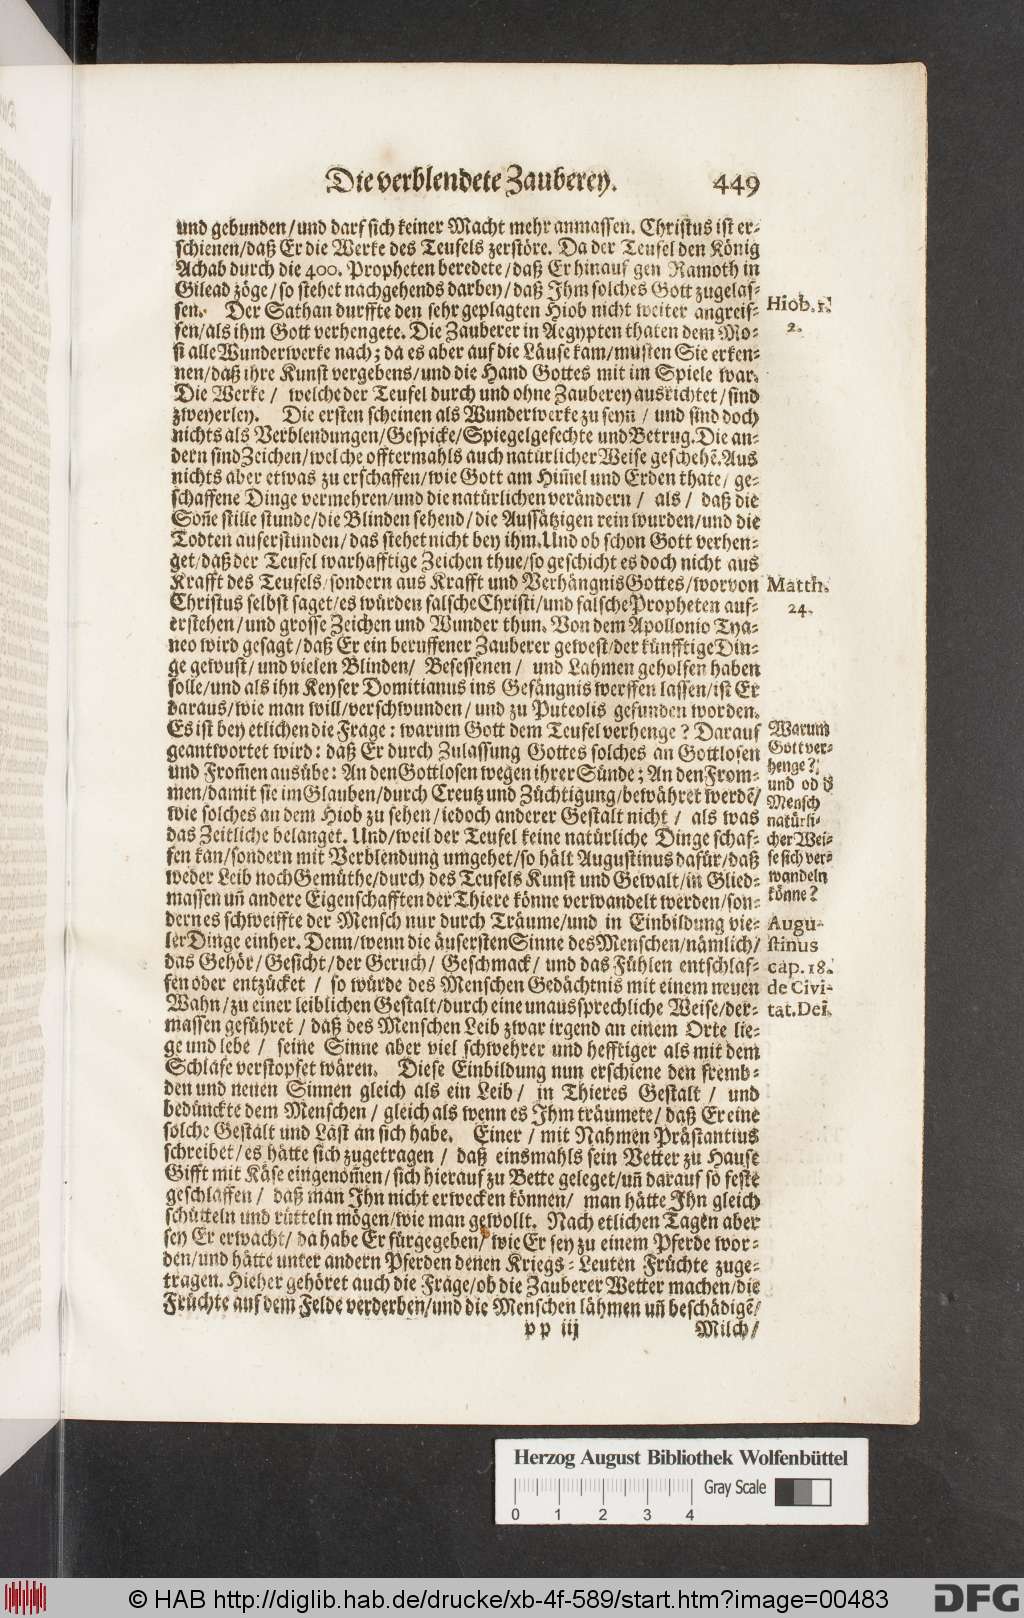 Die verblendete Zauberey. 449
und gebunden/und darf sich keiner Macht mehr anmassen. Christus ist er-
schienen/daß Er die Werke des Teufels zerstöre. Da der Teufel den König
Achab durch die 400. Propheten beredete/daß Er hinauf gen Ramoth in
Gilead zöge/so stehet nachgehends darbey/daß Ihm solches Gott zugelas-
sen. Der Sathan durffte den sehr geplagten Hiob nicht weiter angreif-
fen/als ihm Gott verhengete. Die Zauberer in Aegypten thaten dem Mo-
si alle Wunderwerke nach; da es aber auf die Läuse kam/musten Sie erken-
nen/daß ihre Kunst vergebens/und die Hand Gottes mit im Spiele war.
Die Werke / welche der Teufel durch und ohne Zauberey ausrichtet/sind
zweyerley. Die ersten scheinen als Wunderwerke zu seyn / und sind doch
nichts als Verblendungen/Gespicke/Spiegelgefechte und Betrug. Die an-
dern sind Zeichen/welche offtermahls auch natürlicher Weise geschehẽ. Aus
nichts aber etwas zu erschaffen/wie Gott am Him̃el und Erden thate/ ge-
schaffene Dinge vermehren/und die natürlichen verändern / als / daß die
Soñe stille stunde/die Blinden sehend/die Aussätzigen rein wurden/und die
Todten auferstunden/das stehet nicht bey ihm. Und ob schon Gott verhen-
get/daß der Teufel warhafftige Zeichen thue/so geschicht es doch nicht aus
Krafft des Teufels/sondern aus Krafft und Verhängnis Gottes/worvon
Christus selbst saget/es würden falsche Christi/und falsche Propheten auf-
erstehen/und grosse Zeichen und Wunder thun. Von dem Apollonio Tya-
neo wird gesagt/daß Er ein beruffener Zauberer gewest/der künfftige Din-
ge gewust/und vielen Blinden/ Besessenen / und Lahmen geholfen haben
solle/und als ihn Keyser Domitianus ins Gefängnis werffen lassen/ist Er
daraus/wie man will/verschwunden/und zu Puteolis gefunden worden.
Es ist bey etlichen die Frage: warum Gott dem Teufel verhenge? Darauf
geantwortet wird: daß Er durch Zulassung Gottes solches an Gottlosen
und From̃en ausübe: An den Gottlosen wegen ihrer Sünde; An den From-
men/damit sie im Glauben/durch Creutz und Züchtigung/bewähret werdẽ/
wie solches an dem Hiob zu sehen/iedoch anderer Gestalt nicht / als was
das Zeitliche belanget. Und/weil der Teufel keine natürliche Dinge schaf-
fen kan/sondern mit Verblendung umgehet/so hält Augustinus dafür/daß
weder Leib noch Gemüthe/durch des Teufels Kunst und Gewalt/in Glied-
massen uñ andere Eigenschafften der Thiere könne verwandelt werden/son-
dern es schweiffte der Mensch nur durch Träume/und in Einbildung vie-
ler Dinge einher. Denn/wenn die äusersten Sinne des Menschen/nämlich/
das Gehör/Gesicht/der Geruch/ Geschmack/ und das Fühlen entschlaf-
fen oder entzücket / so würde des Menschen Gedächtnis mit einem neuen
Wahn/zu einer leiblichen Gestalt/durch eine unaussprechliche Weise/der-
massen geführet / daß des Menschen Leib zwar irgend an einem Orte lie-
ge und lebe / seine Sinne aber viel schwehrer und hefftiger als mit dem
Schlafe verstopfet wären. Diese Einbildung nun erschiene den fremb-
den und neuen Sinnen gleich als ein Leib/ in Thieres Gestalt / und
bedünckte dem Menschen / gleich als wenn es Ihm träumete/ daß Er eine
solche Gestalt und Last an sich habe. Einer / mit Nahmen Prästantius
schreibet/es hätte sich zugetragen / daß einsmahls sein Vetter zu Hause
Gifft mit Käse eingenom̃en/sich hierauf zu Bette geleget/uñ darauf so feste
geschlaffen / daß man Ihn nicht erwecken können/ man hätte Ihn gleich
schütteln und rütteln mögen/wie man gewollt. Nach etlichen Tagen aber
sey Er erwacht/ da habe Er fürgegeben/ wie Er sey zu einem Pferde wor-
den/und hätte unter andern Pferden denen Kriegs-Leuten Früchte zuge-
tragen. Hieher gehöret auch die Frage/ob die Zauberer Wetter machen/die
Früchte auf dem Felde verderben/und die Menschen lähmen uñ beschädigẽ/
pp iij Milch/
Hiob. 1.
2.
Matth.
24.
Warum
Gott ver-
henge?
und ob d
Mensch
natürli-
cher Wei-
se sich ver-
wandeln
könne?
Augu-
stinus
cap. 18.
de Civi-
tat. Dei.
Herzog August Bibliothek Wolfenbüttel
Gray Scale
0 1 2 3 4
© HAB http://diglib.hab.de/drucke/xb-4f-589/start.htm?image=00483
DFG